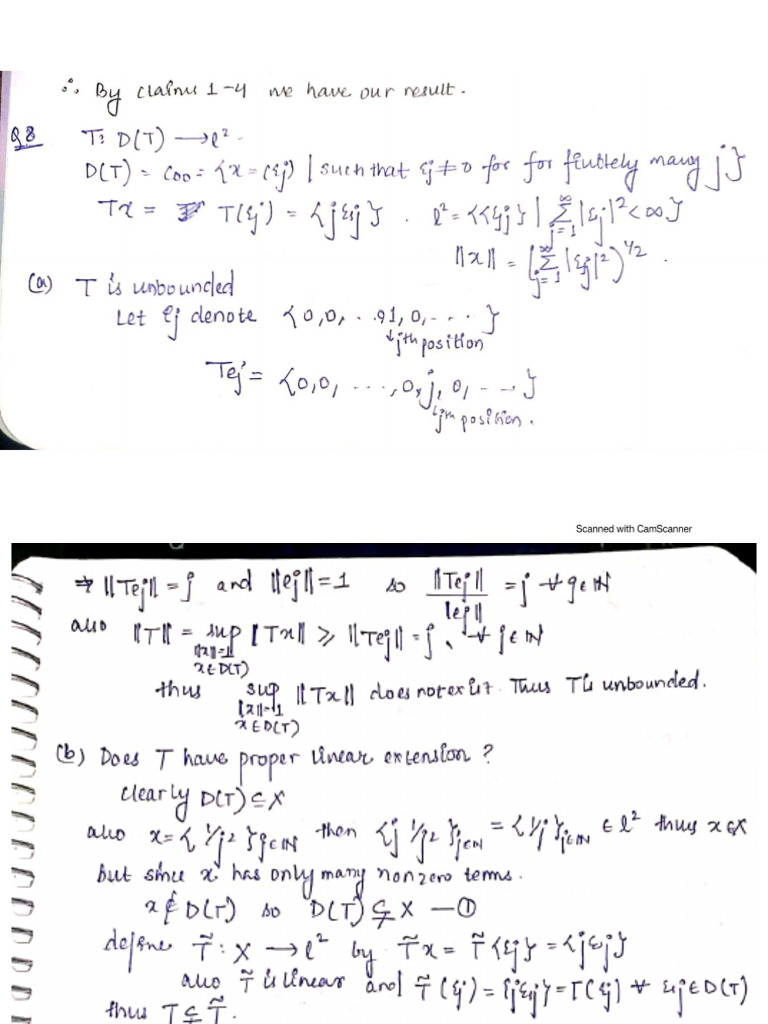 ∴ By claims 1-4 we have our result.
Q8 T: D(T) → l².
D(T) = C₀₀ = {x = (ξj) | such that ξj ≠ 0 for for finitely many j}
Tx = T(ξj) = {jξj}. l² = {{ξj} | ∑_{j=1}^∞ |ξj|² < ∞}
||x|| = (∑_{j=1}^∞ |ξj|²)^{1/2}.
(a) T is unbounded
Let ej denote {0,0,...,1,0,...}
↓ jth position
Tej = {0,0, ..., 0, j, 0, ...}
↳ jth position.
Scanned with CamScanner
⇒ ||Tej|| = j and ||ej|| = 1 so ||Tej|| / ||ej|| = j ∀ j ∈ ℕ
also ||T|| = sup_{||x||=1, x∈D(T)} ||Tx|| ≥ ||Tej|| = j, ∀ j ∈ ℕ
thus sup_{||x||=1, x∈D(T)} ||Tx|| does not exist. Thus T is unbounded.
(b) Does T have proper linear extension?
clearly D(T) ⊆ X
also x = {1/j²}_{j∈ℕ} then {j 1/j²}_{j∈ℕ} = {1/j}_{j∈ℕ} ∈ l² thus x ∈ X
but since x has only many nonzero terms.
x ∉ D(T) so D(T) ⊊ X — ①
define T̃ : X → l² by T̃x = T̃{ξj} = {jξj}
also T̃ is linear and T̃(ξj) = {jξj} = T(ξj) ∀ ξj ∈ D(T)
thus T ⊊ T̃.